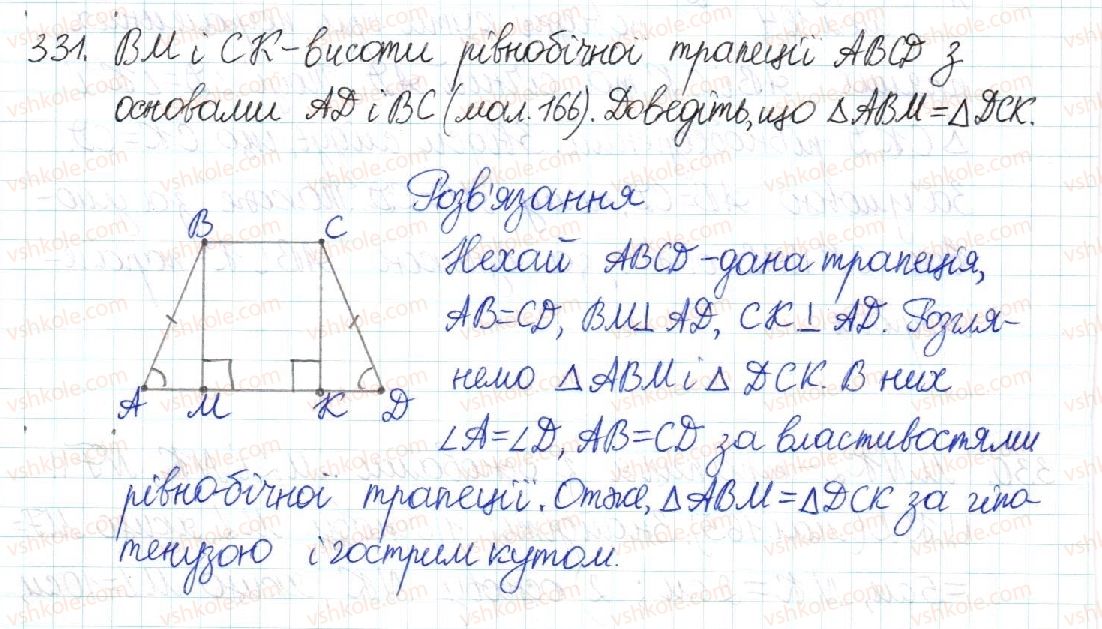 331. ВМ і СК-висоти рівнобічної трапеції ABCD з
основами AD і BC (мал. 166). Доведіть, що △ABM=△DCK.
Розв'язання
B C
Нехай ABCD-дана трапеція,
AB=CD, BM⊥AD, CK⊥AD. Розгля-
немо △ABM і △DCK. В них
A M K D
∠A=∠D, AB=CD за властивостями
рівнобічної трапеції. Отже, △ABM=△DCK за гіпо-
тенузою і гострим кутом.